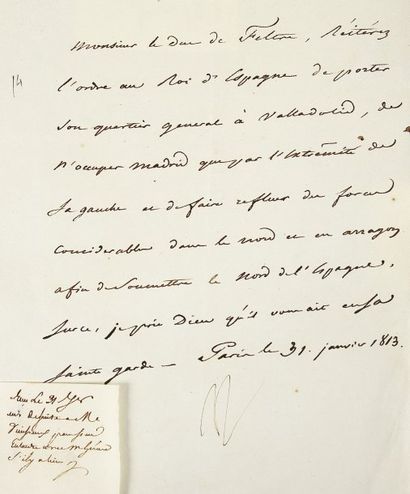 Monsieur le duc de Feltre, Réitérez
14
l'ordre au Roi d'Espagne de porter
son quartier general à Valladolid, de
n'occuper Madrid que par l'extrêmité de
sa gauche et de faire refluer des forces
considerables dans le nord et en arragon
afin de soumettre le nord de l'Espagne,
surce, je prie Dieu qu'il vous ait en sa
sainte garde — Paris le 31. janvier 1813.
N